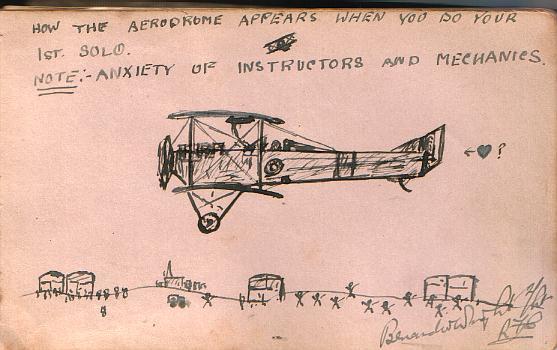 HOW THE AERODROME APPEARS WHEN YOU DO YOUR
1ST. SOLO.
NOTE:- ANXIETY OF INSTRUCTORS AND MECHANICS.
← ♥ ?